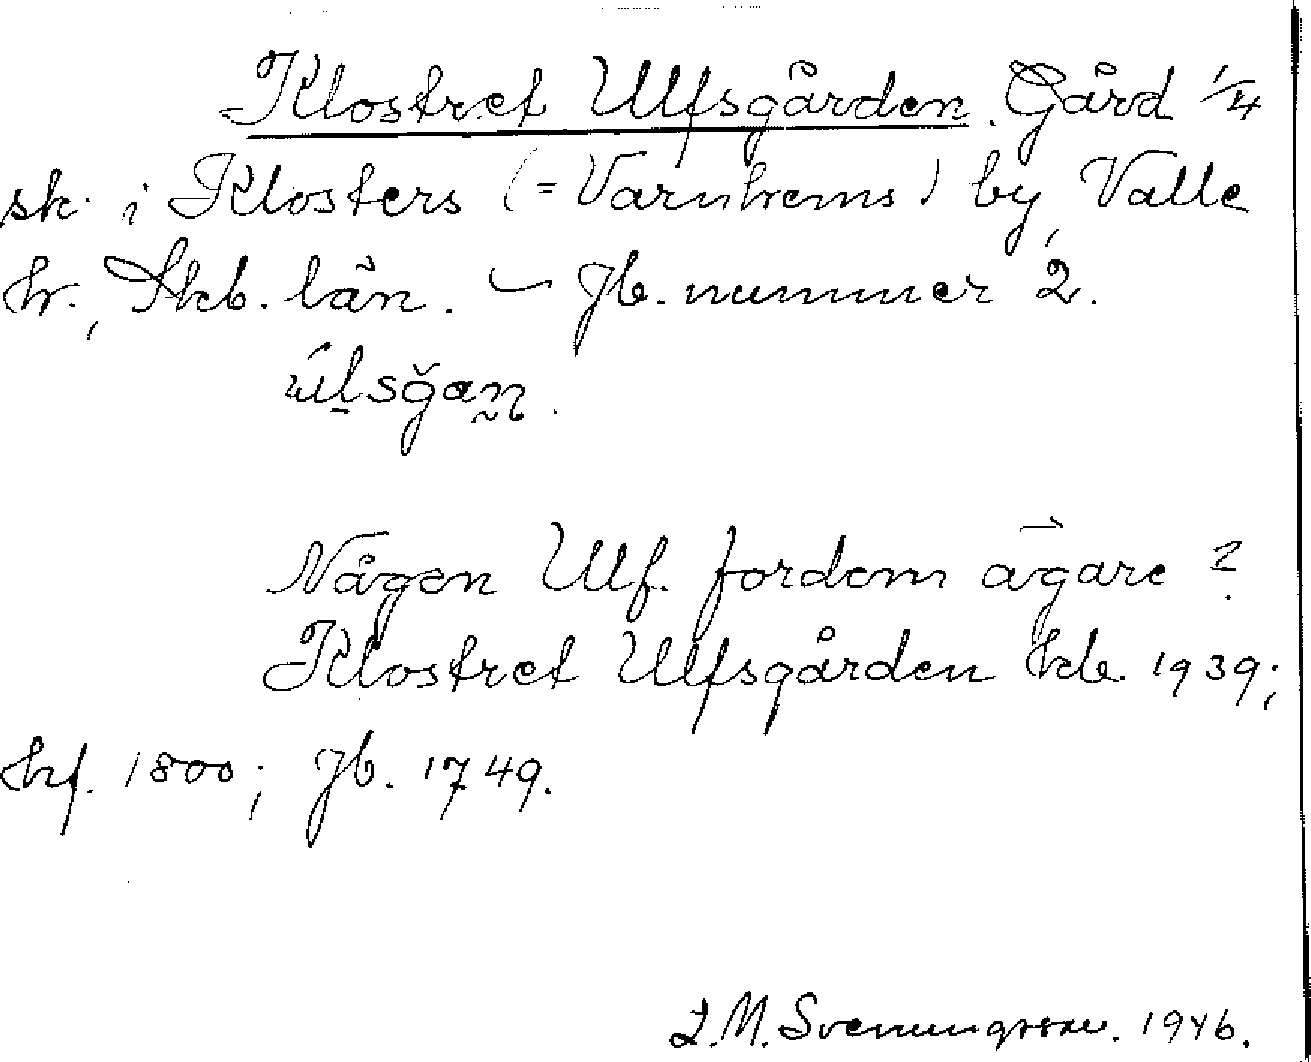 Klostret Ulfsgården. Gård 1/4
sk. i Klosters (= Varnhems) by, Valle
hr., Skb. län. — Jb. nummer 2.
ú̄l̠sğan̰.
Någon Ulf. fordom ägare?
Klostret Ulfsgården kb. 1939;
hrf. 1800; Jb. 1749.
J.M. Svenungsson. 1946.